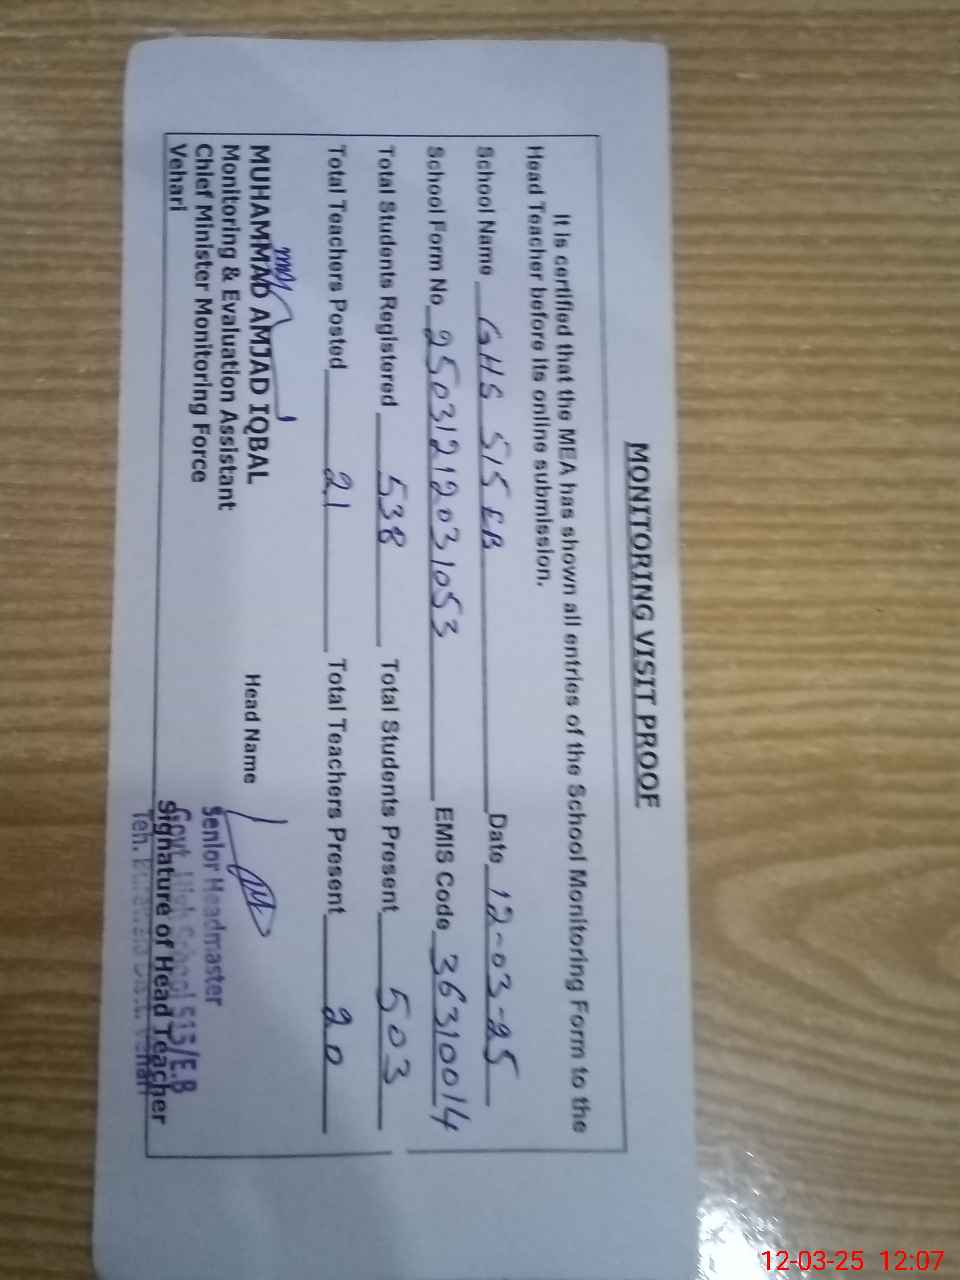 MONITORING VISIT PROOF
It is certified that the MEA has shown all entries of the School Monitoring Form to the
Head Teacher before its online submission.
School Name GHS 515 EB Date 12-03-25
School Form No 25031212031053 EMIS Code 36310014
Total Students Registered 538 Total Students Present 503
Total Teachers Posted 21 Total Teachers Present 20
MUHAMMAD AMJAD IQBAL Head Name
Monitoring & Evaluation Assistant
Chief Minister Monitoring Force
Vehari
Senior Headmaster
Govt. High School 515/E.B
Signature of Head Teacher
Teh. Distt. Vehari
12-03-25 12:07